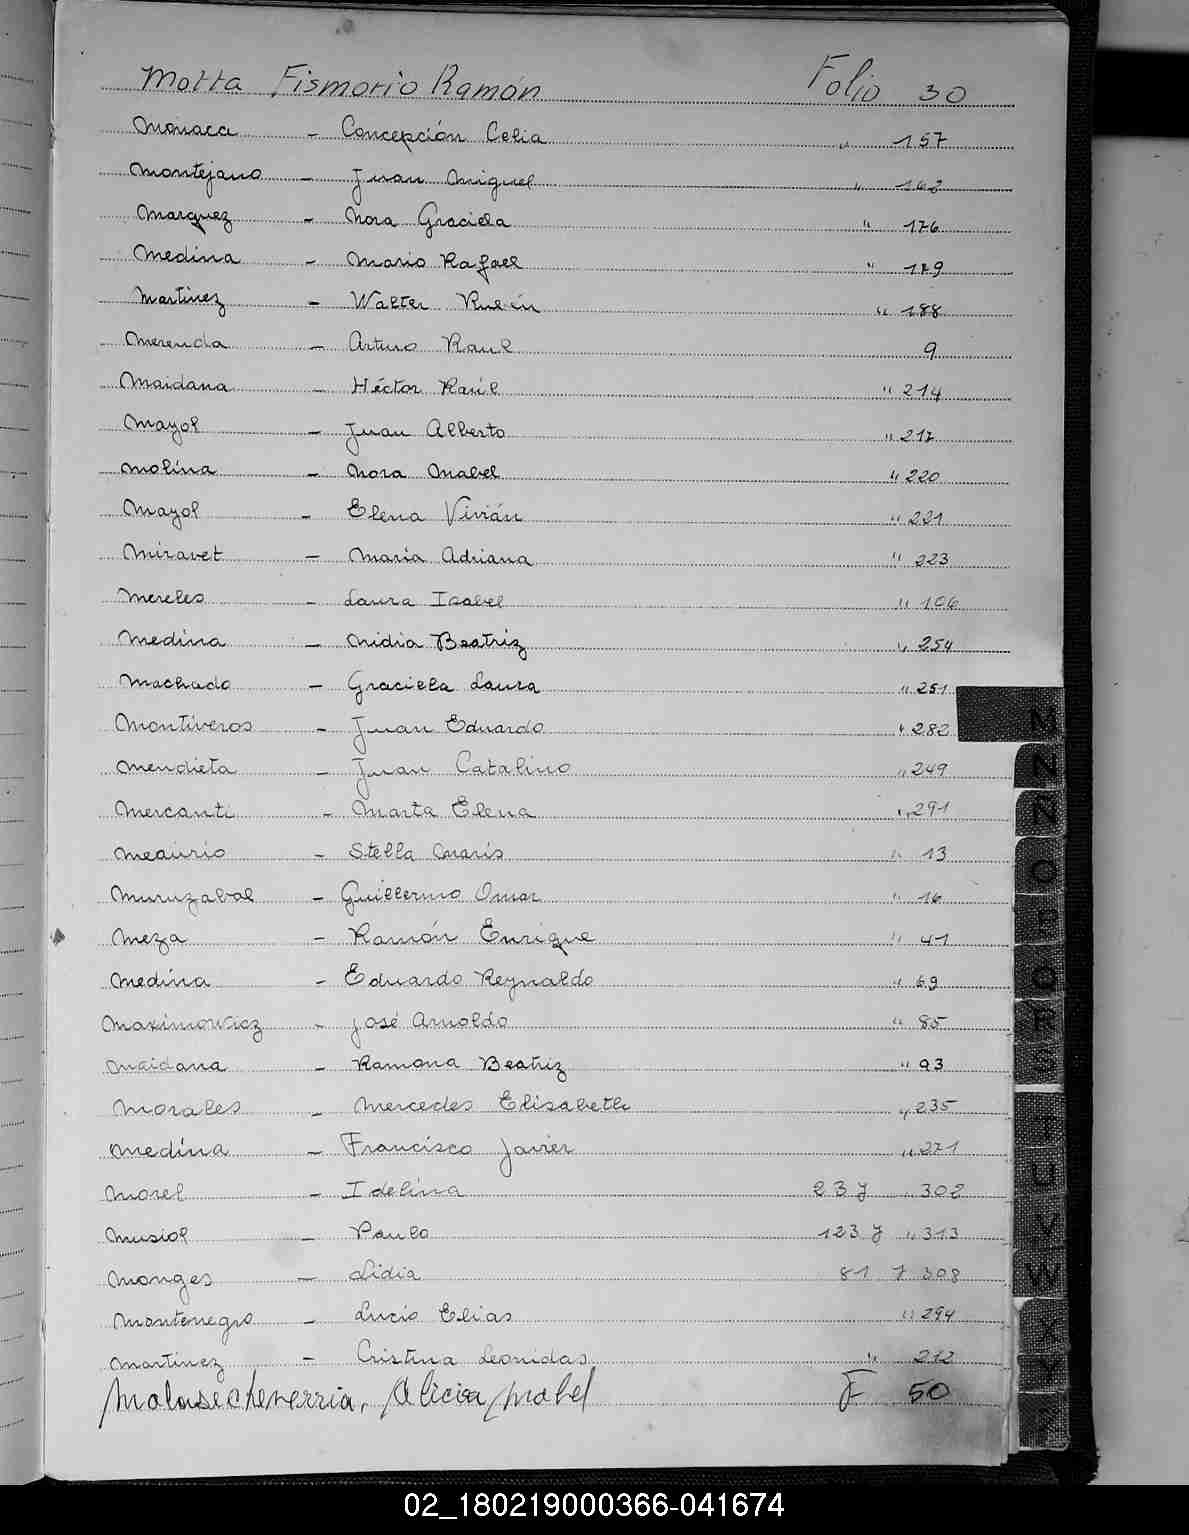 Motta Fismorio Ramón Folio 30
Monaca - Concepción Celia " 157
Montejano - Juan Miguel " 162
Marquez - Nora Graciela " 176
Medina - Mario Rafael " 179
Martinez - Walter Rubén " 188
Merenda - Arturo Raul 9
Maidana - Héctor Raúl " 214
Mayol - Juan Alberto " 217
Molina - Nora Mabel " 220
Mayol - Elena Vivián " 221
Miravet - María Adriana " 223
Mereles - Laura Isabel " 106
Medina - Nidia Beatriz " 254
Machado - Graciela Laura " 251
Montiveros - Juan Eduardo " 282
Mendieta - Juan Catalino " 249
Mercanti - Marta Elena " 291
Meaurio - Stella Maris " 13
Muruzabal - Guillermo Omar " 16
Meza - Ramón Enrique " 41
Medina - Eduardo Reynaldo " 69
Maximowicz - José Arnoldo " 85
Maidana - Ramona Beatriz " 93
Morales - Mercedes Elisabeth " 235
Medina - Francisco Javier " 271
Morel - Idelina 23 y " 302
Musiol - Paulo 123 y " 313
Monges - Lidia 81 y 308
Montenegro - Lucio Elias " 294
Martinez - Cristina Leonidas " 212
Alicia Mabel F 50
M
N
Ñ
O
P
Q
R
S
T
U
V
W
X
Y
Z
02_180219000366-041674